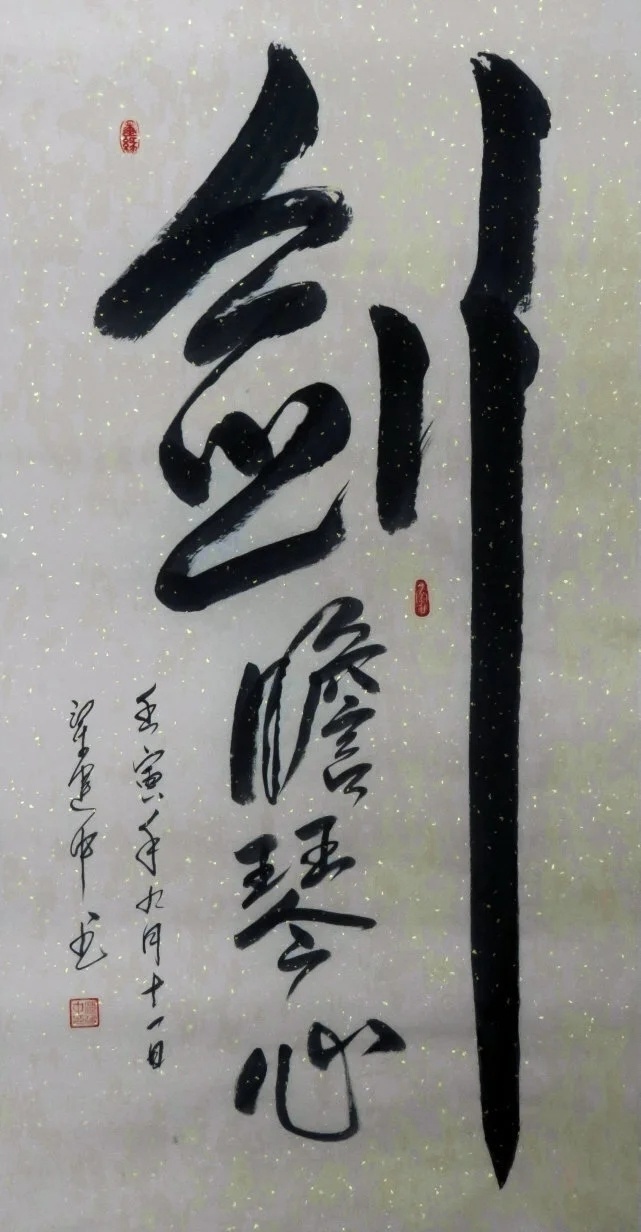 劍膽琴心
壬寅年九月十一日
梁建中书